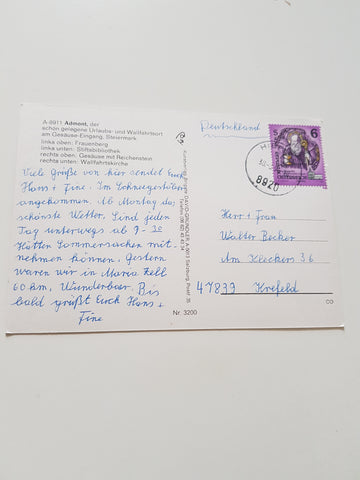 A-8911 Admont, der
schön gelegene Urlaubs- und Wallfahrtsort
am Gesäuse-Eingang, Steiermark
links oben: Frauenberg
links unten: Stiftsbibliothek
rechts oben: Gesäuse mit Reichenstein
rechts unten: Wallfahrtskirche
Viele Grüße von hier sendet Euch
Hans + Fine. Im Schneegestöber
angekommen. Ab Montag das
schönste Wetter. Sind jeden
Tag unterwegs ab 9-
Hätten Sommersachen mit-
nehmen können. Gestern
waren wir in Maria Zell
60 km, Wunderbar. Bis
bald grüßt Euch Hans +
Fine
Nr. 3200
Deutschland
6
8920
Herr + Frau
Walter Becker
Am Klockers 36
47833 Krefeld